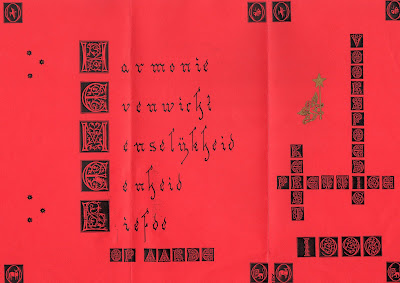 Harmonie
Evenwicht
Menselijkheid
Eenheid
Liefde
OP AARDE
VOORSPOEDIG
KERST
PRETTIGE